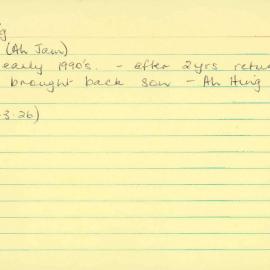 g
(Ah Jam)
early 1990's. - after 2yrs retu
brought back son - Ah Hing
3.26)